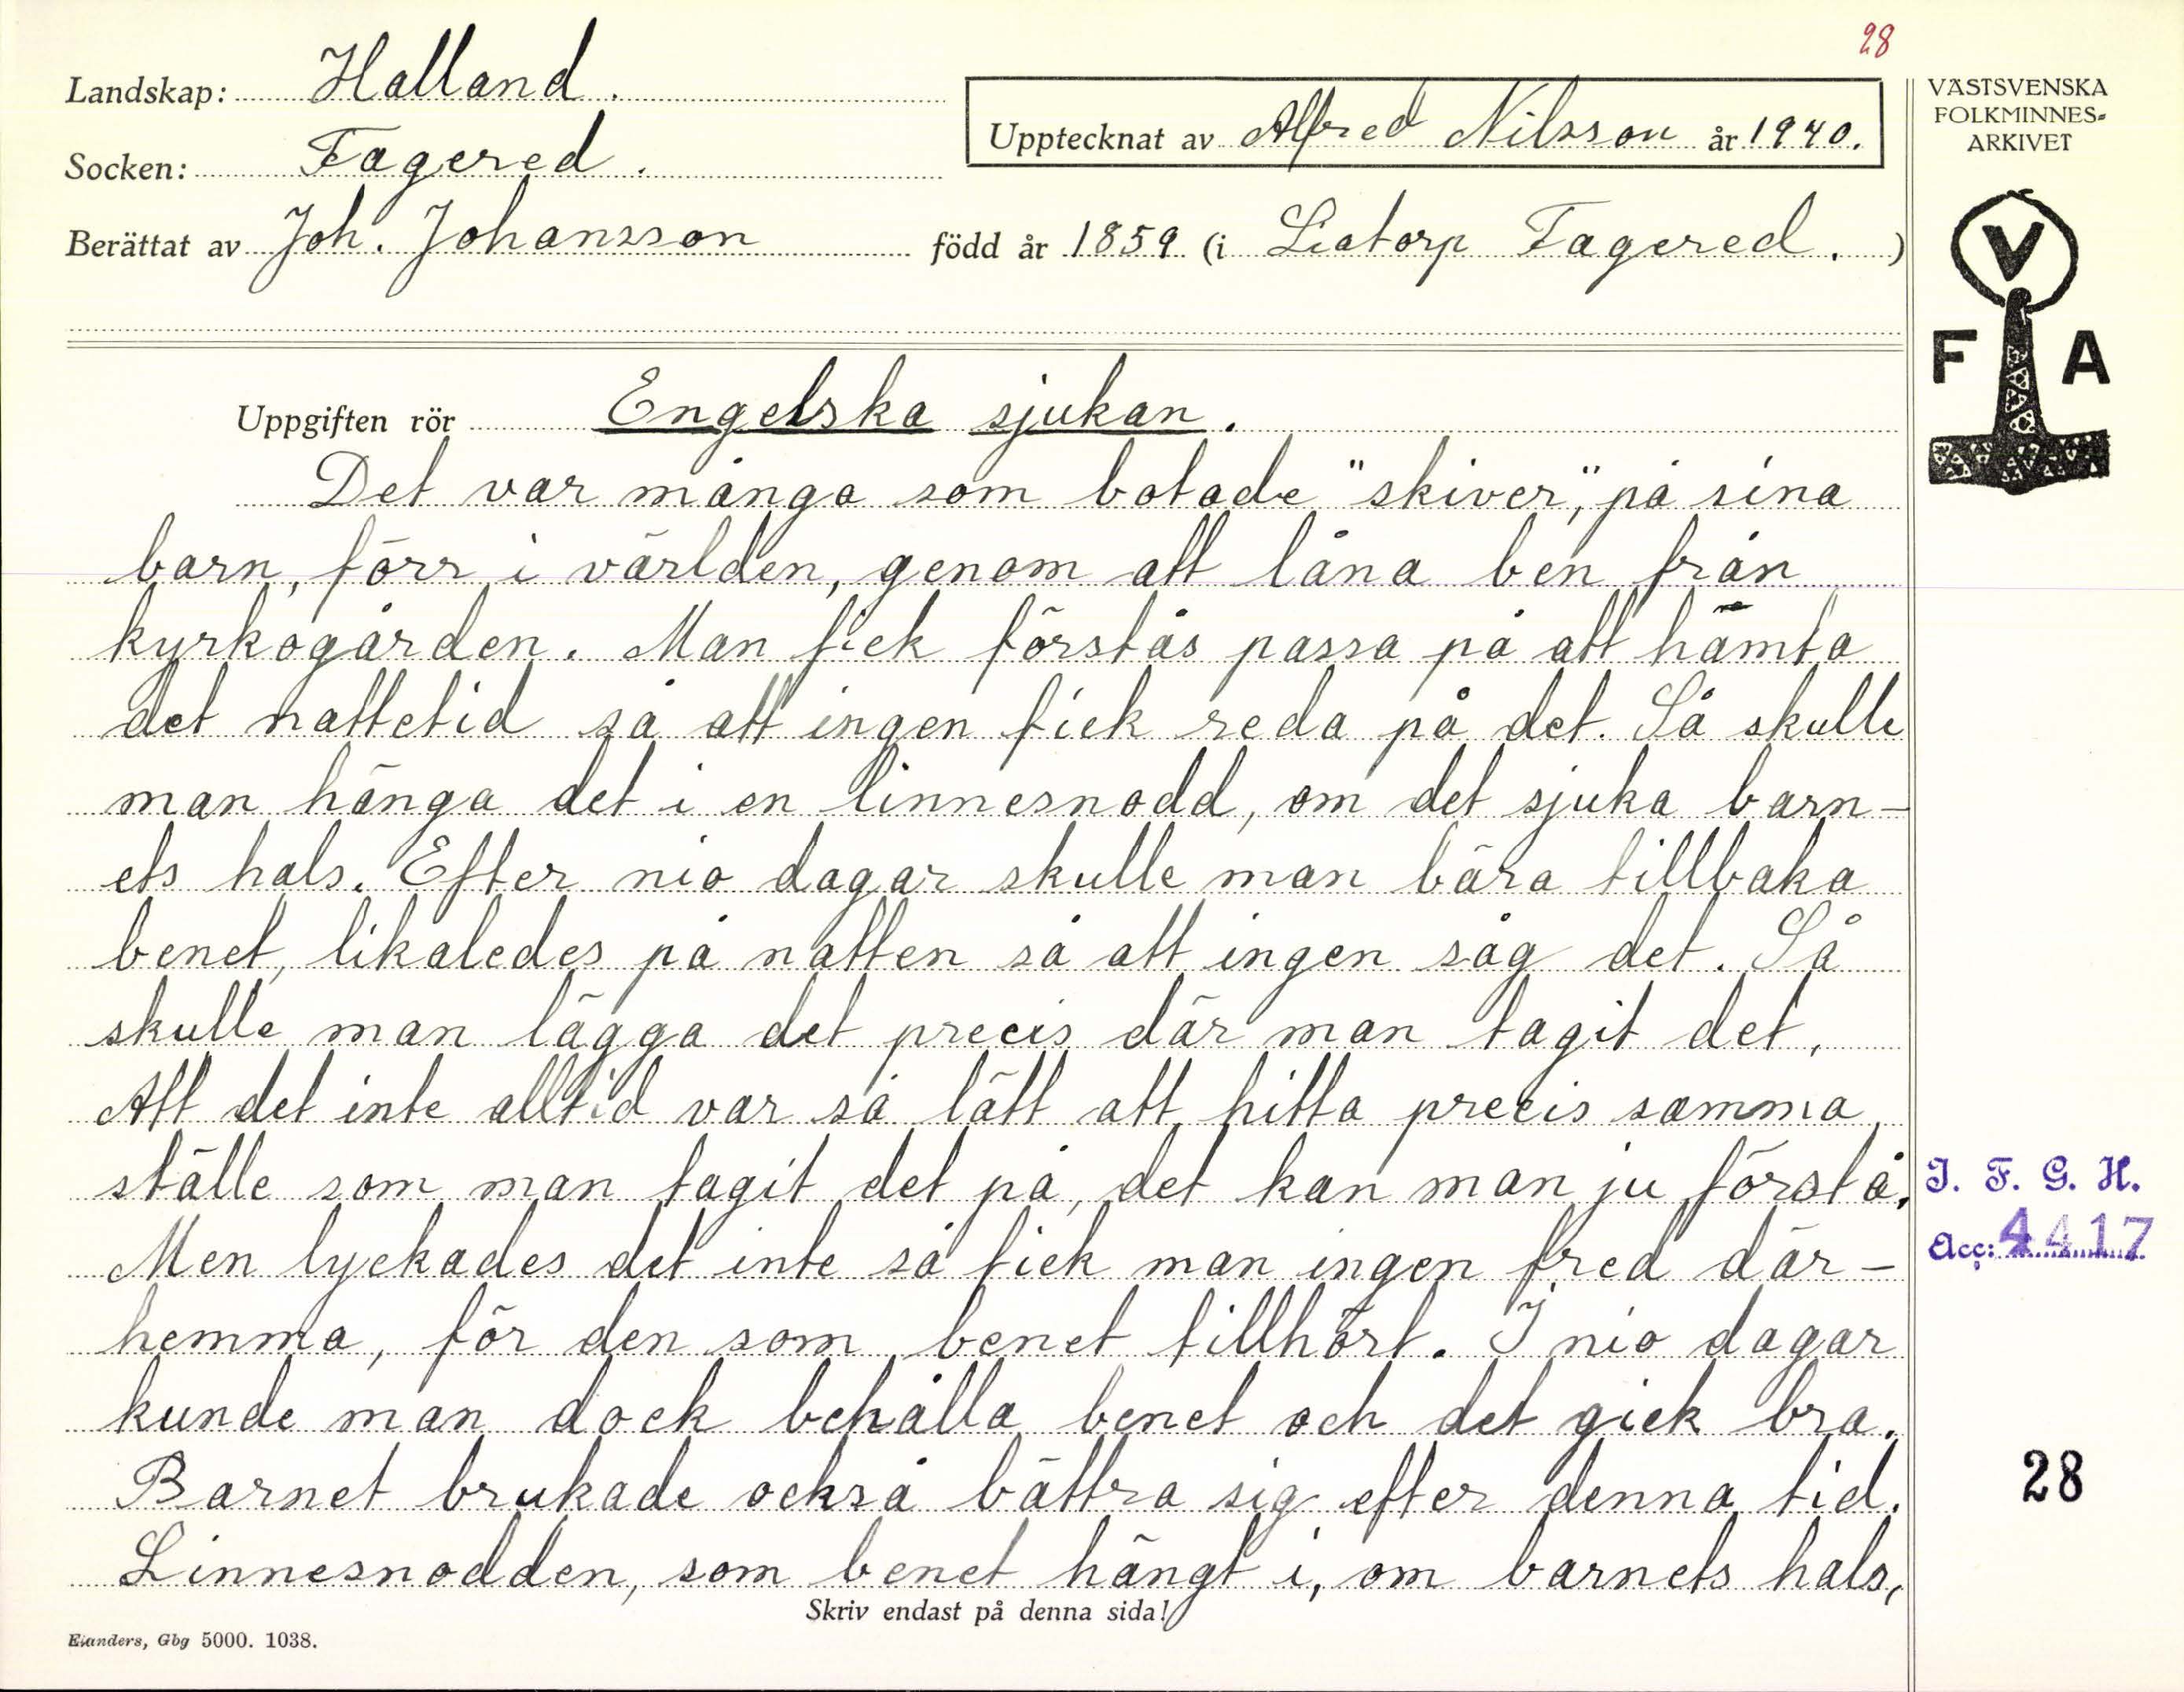 28
Landskap: Halland.
Upptecknat av Alfred Nilsson år 1940.
VÄSTSVENSKA
FOLKMINNES=
ARKIVET
Socken: Fagered.
Berättat av Joh. Johansson född år 1859 (i Liatorp Fagered.)
V
F A
Uppgiften rör Engelska sjukan.
Det var många som botade "skiver", på sina
barn, förr i världen, genom att låna ben från
kyrkogården. Man fick förstås passa på att hämta
det nattetid så att ingen fick reda på det. Så skulle
man hänga det i en linnesnodd, om det sjuka barn-
ets hals. Efter nio dagar skulle man bära tillbaka
benet, likaledes på natten så att ingen såg det. Så
skulle man lägga det precis där man tagit det,
Att det inte alltid var så lätt att hitta precis samma
ställe som man tagit det på, det kan man ju förstå.
Men lyckades det inte så fick man ingen fred där-
hemma, för den som benet tillhört. I nio dagar
kunde man dock behålla benet och det gick bra.
Barnet brukade också bättra sig efter denna tid.
Linnesnodden, som benet hängt i, om barnets hals,
I. F. G. H.
Acc: 4417
28
Skriv endast på denna sida!
Elanders, Gbg 5000. 1038.